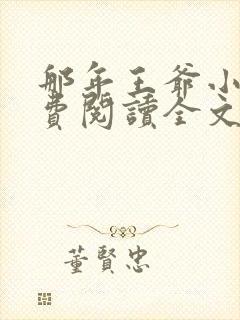 那年王爺小
費閱讀全文
董賢忠